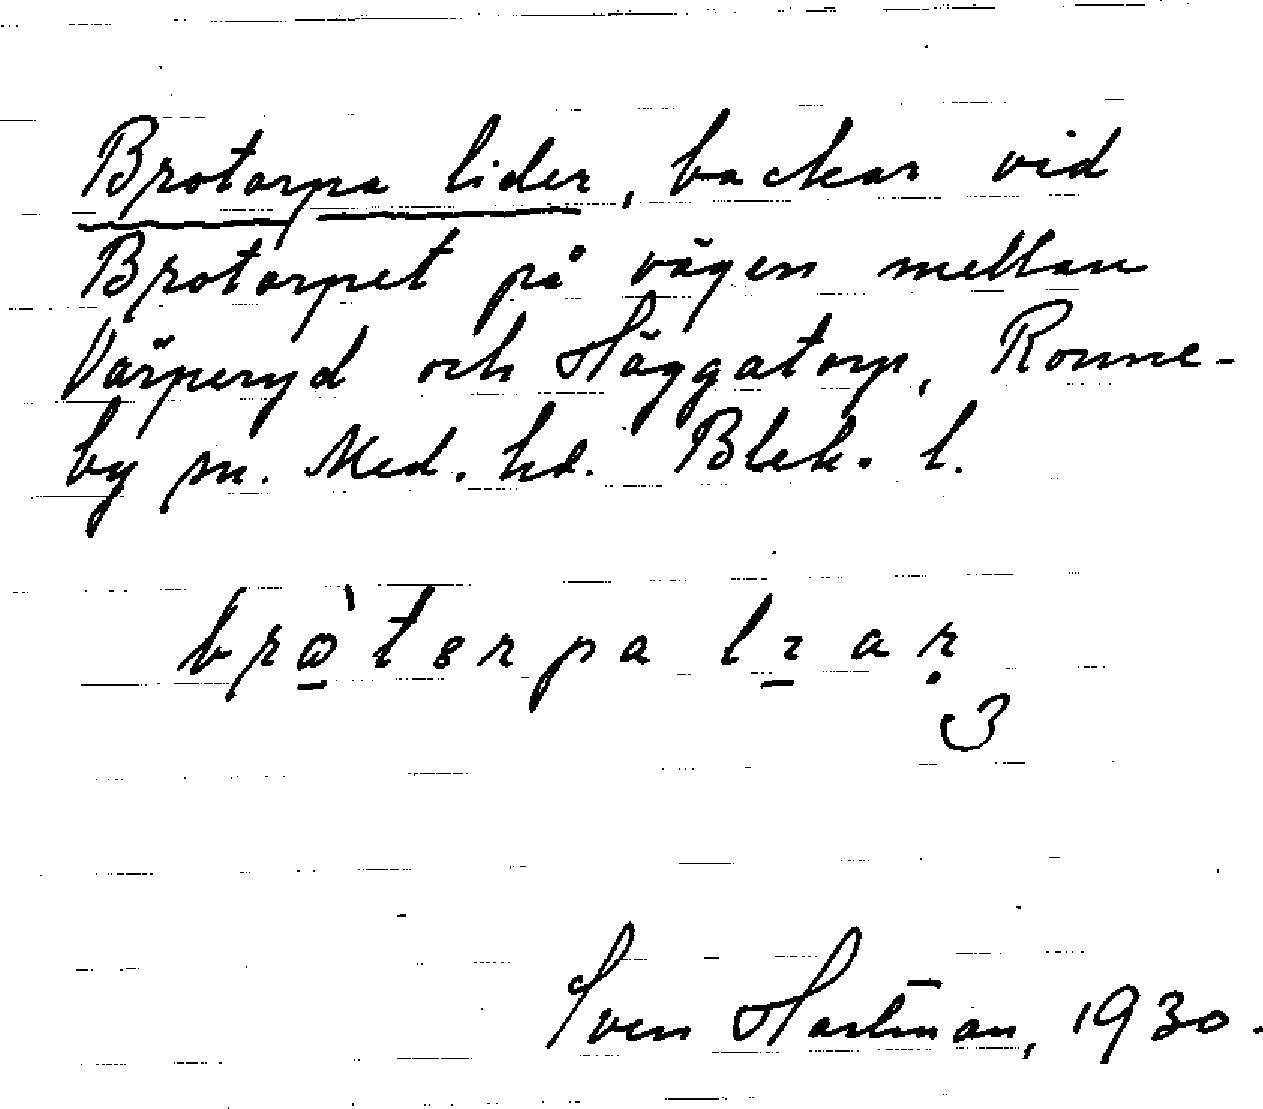 Brotorpa lider, backar vid
Brotorpet på vägen mellan
Värperyd och Häggatorp, Ronne-
by sn. Med. hd. Blek. l.
Sven Hartman, 1930.